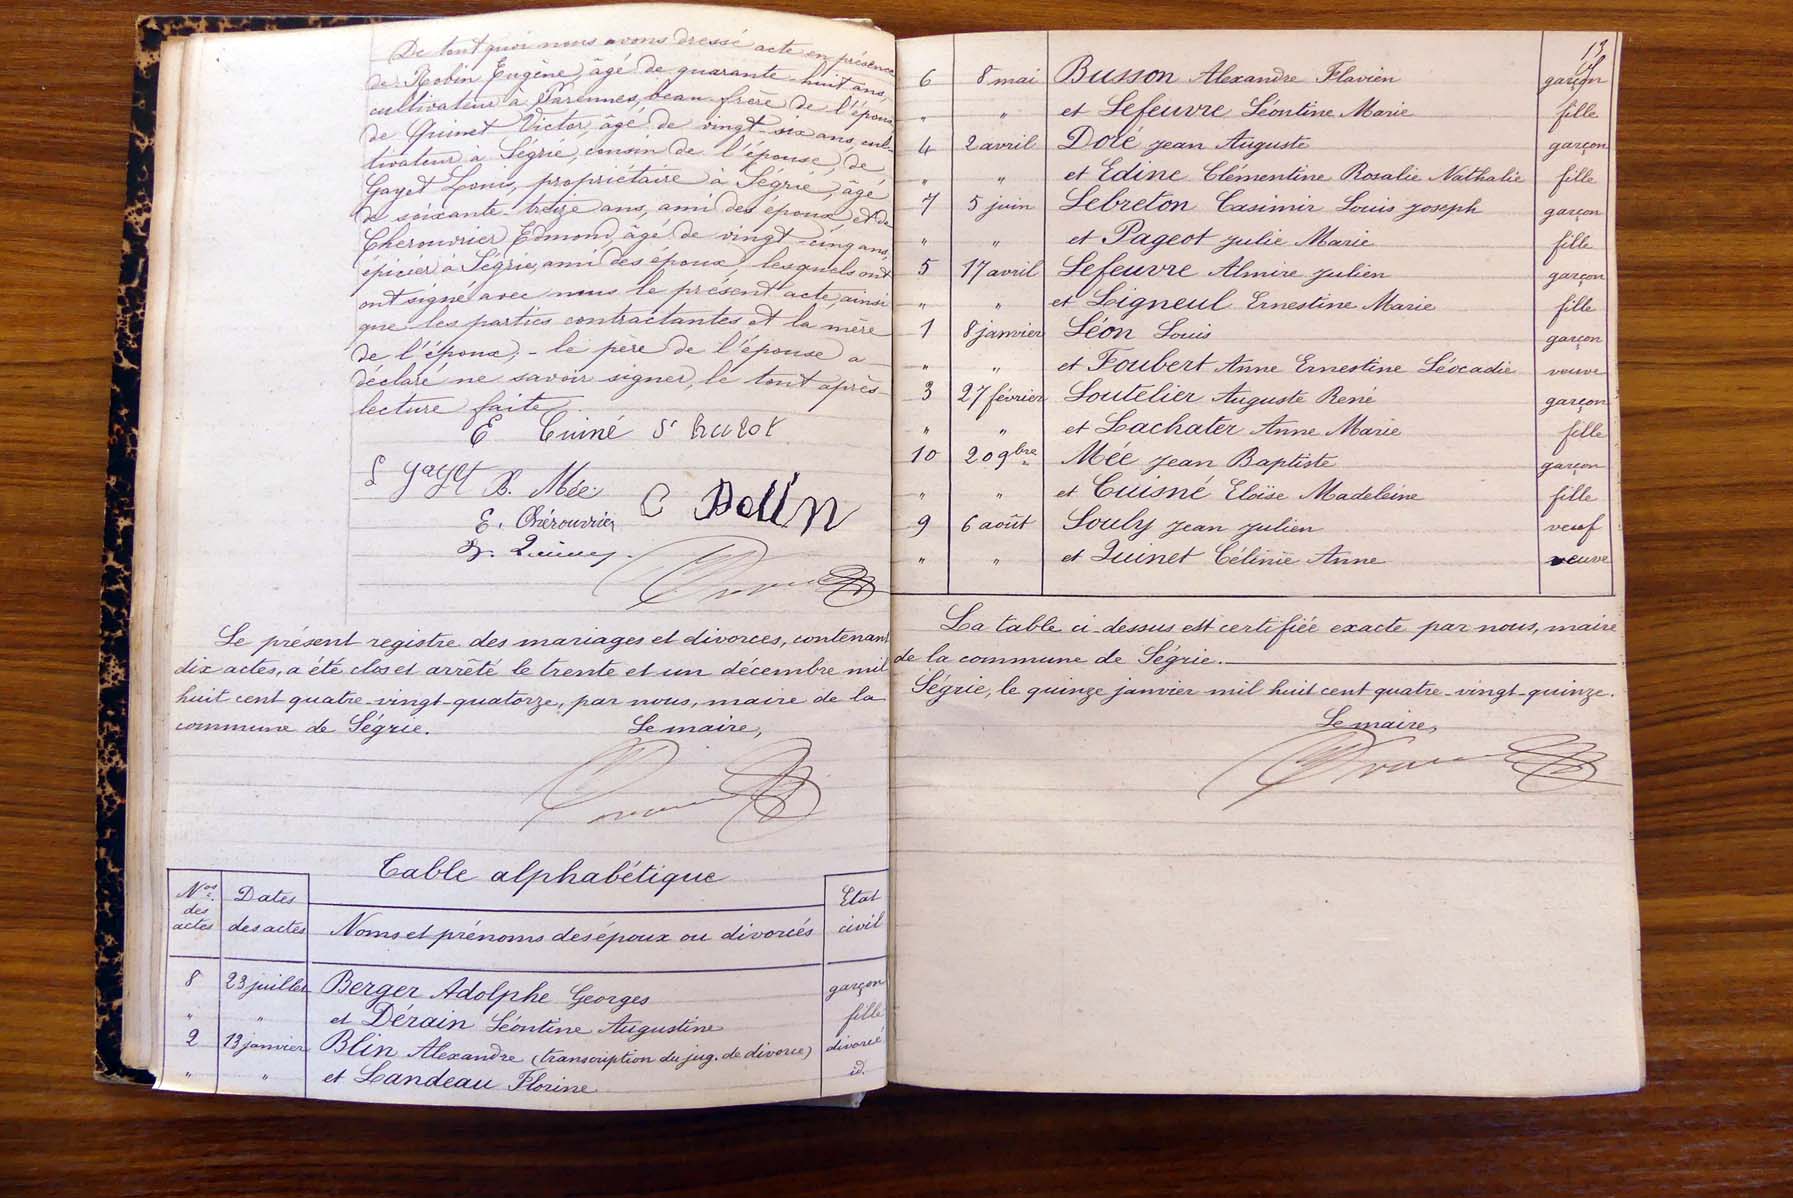 De tout quoi nous avons dressé acte en présence
de Robin Eugène, âgé de quarante-huit ans,
cultivateur à Varennes, beau-frère de l'époux,
de Quinet Victor, âgé de vingt-six ans, cul-
tivateur à Ségrie, cousin de l'épouse, de
Gayet Louis, propriétaire à Ségrie, âgé
de soixante-treize ans, ami des époux, et de
Cherouvrier Edmond, âgé de vingt-cinq ans,
épicier à Ségrie, ami des époux, lesquels ont
ont signé avec nous le présent acte, ainsi
que les parties contractantes et la mère
de l'époux; - le père de l'épouse a
déclaré ne savoir signer, le tout après
lecture faite.
E Cuiné
gayet B. Mée.
E. Chérouvrier
Le présent registre des mariages et divorces, contenant
dix actes, a été clos et arrêté le trente et un décembre mil
huit cent quatre-vingt-quatorze, par nous, maire de la
commune de Ségrie. Le maire,
Table alphabétique
Nos des actes
Dates des actes
Noms et prénoms des époux ou divorcés
Etat civil
8 23 juillet Berger Adolphe Georges garçon
" " et Dérain Léontine Augustine fille
2 13 janvier Blin Alexandre (transcription du jug. de divorce) divorcé
" " et Landeau Florine id.
13
6 8 mai Busson Alexandre Flavien garçon
" " et Lefeuvre Léontine Marie fille
4 2 avril Doié jean Auguste garçon
" " et Edine Clémentine Rosalie Nathalie fille
7 5 juin Lebreton Casimir Louis joseph garçon
" " et Pageot julie Marie fille
5 17 avril Lefeuvre Almire julien garçon
" " et Ligneul Ernestine Marie fille
1 8 janvier Léon Louis garçon
" " et Foubert Anne Ernestine Léocadie veuve
3 27 février Loutelier Auguste René garçon
" " et Lachater Anne Marie fille
10 20 9bre Mée jean Baptiste garçon
" " et Cuisné Eloïse Madeleine fille
9 6 août Souly jean julien veuf
" " et Quinet Célinie Anne veuve
La table ci-dessus est certifiée exacte par nous, maire
de la commune de Ségrie.
Ségrie, le quinze janvier mil huit cent quatre-vingt-quinze.
Le maire,